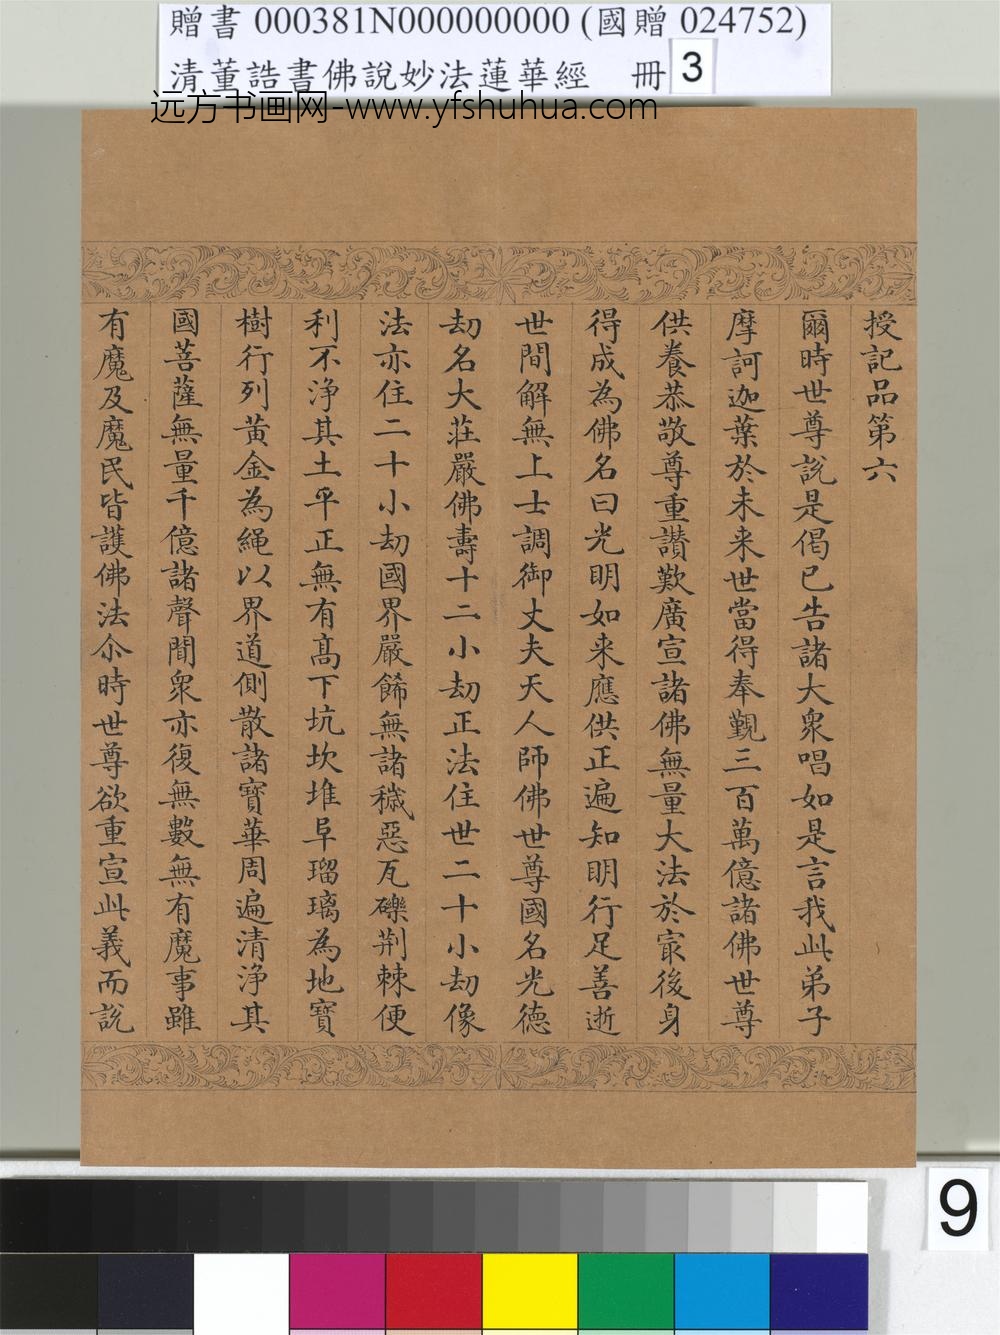 贈書 000381N000000000 (國贈 024752)
清董誥書佛說妙法蓮華經 冊 3
远方书画网-www.yfshuhua.com
授記品第六
爾時世尊說是偈已告諸大衆唱如是言我此弟子
摩訶迦葉於未来世當得奉覲三百萬億諸佛世尊
供養恭敬尊重讚歎廣宣諸佛無量大法於㝡後身
得成為佛名曰光明如来應供正遍知明行足善逝
世間解無上士調御丈夫天人師佛世尊國名光德
劫名大莊嚴佛壽十二小劫正法住世二十小劫像
法亦住二十小劫國界嚴餙無諸穢惡瓦礫荆棘便
利不淨其土平正無有髙下坑坎堆阜瑠璃為地寶
樹行列黄金為繩以界道側散諸寶華周遍清淨其
國菩薩無量千億諸聲聞衆亦復無數無有魔事雖
有魔及魔民皆護佛法尒時世尊欲重宣此義而說
9